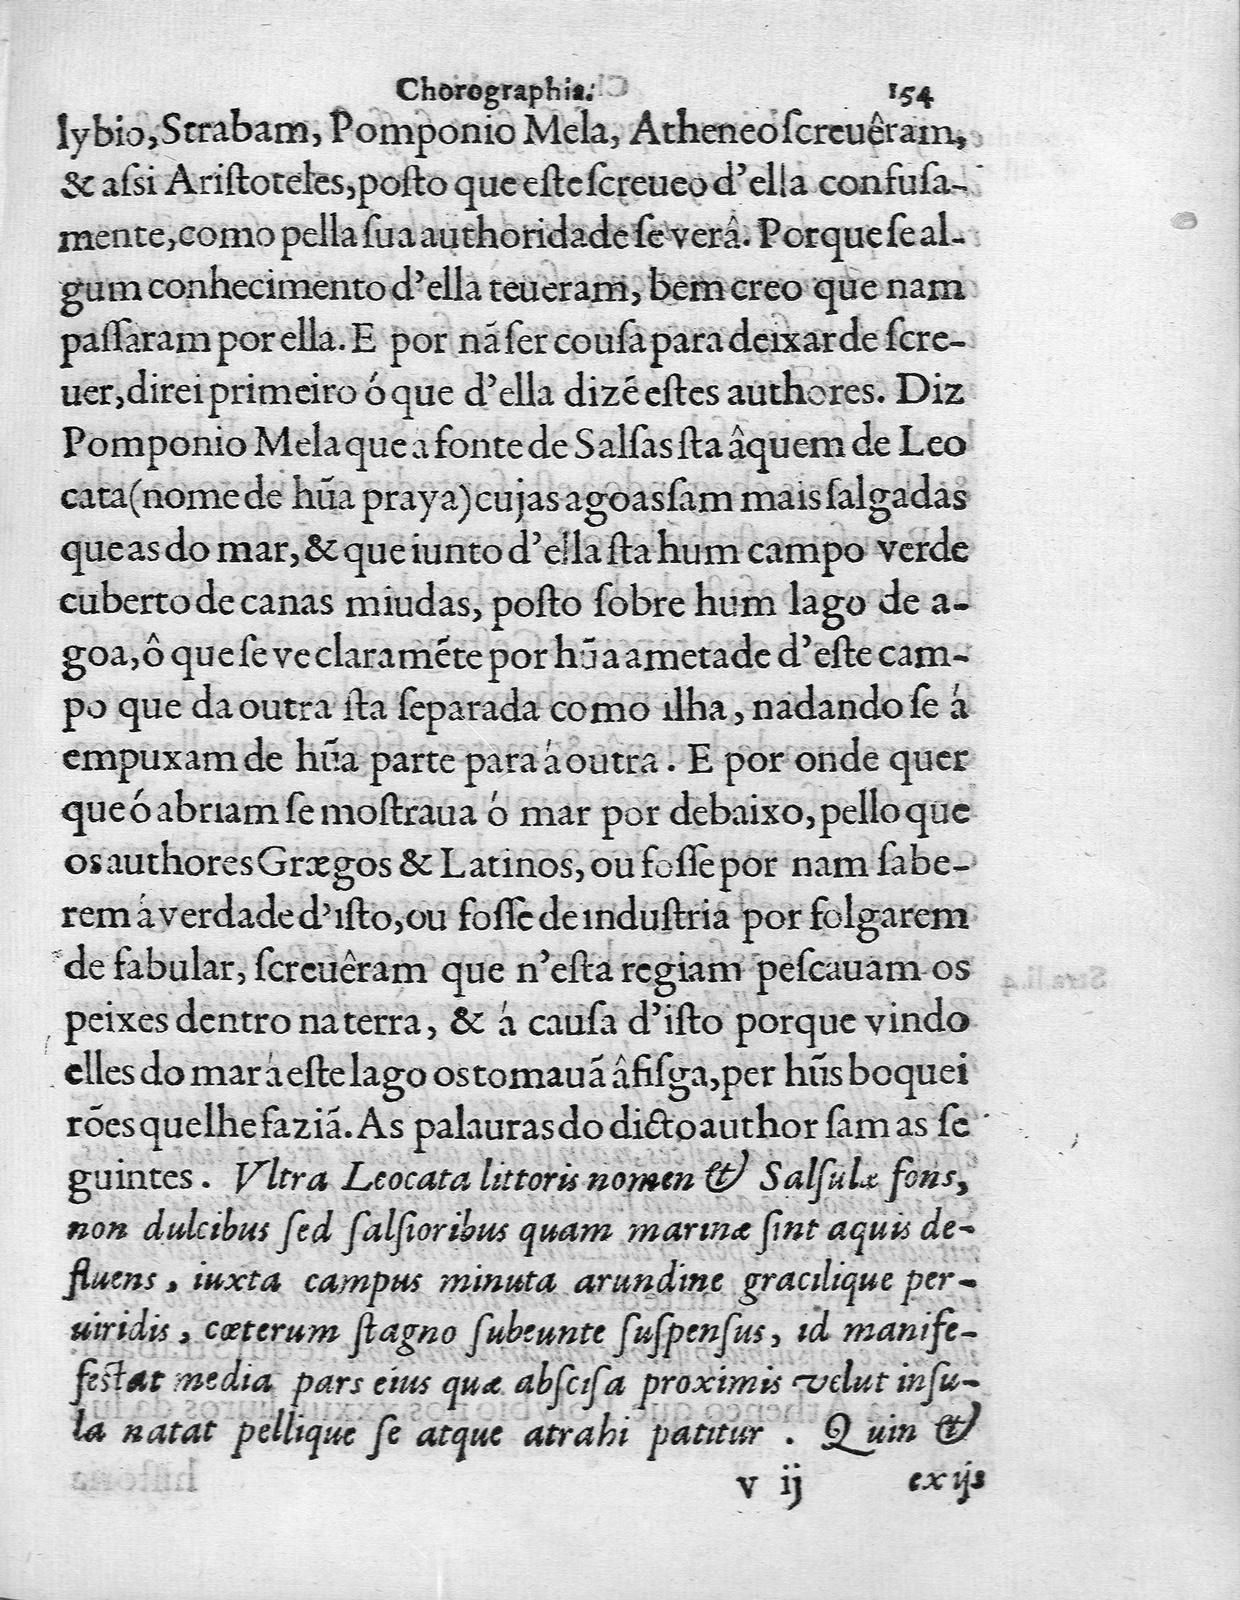 Chorographia. 154
lybio, Strabam, Pomponio Mela, Atheneo ſcreuêram,
& aſsi Ariſtoteles, poſto que eſte ſcreueo d'ella confuſa-
mente, como pella ſua authoridade ſe verâ. Porque ſe al-
gum conhecimento d'ella teueram, bem creo que nam
paſſaram por ella. E por nã ſer couſa para deixar de ſcre-
uer, direi primeiro ó que d'ella dizẽ eſtes authores. Diz
Pomponio Mela que a fonte de Salſas ſta âquem de Leo
cata (nome de hũa praya) cujas agoas ſam mais ſalgadas
que as do mar, & que iunto d'ella ſta hum campo verde
cuberto de canas miudas, poſto ſobre hum lago de a-
goa, ô que ſe ve claramẽte por hũa ametade d'eſte cam-
po que da outra ſta ſeparada como ilha, nadando ſe á
empuxam de hũa parte para á outra. E por onde quer
que ó abriam ſe moſtraua ó mar por debaixo, pello que
os authores Græegos & Latinos, ou foſſe por nam ſabe-
rem á verdade d'iſto, ou foſſe de induſtria por folgarem
de fabular, ſcreuêram que n'eſta regiam peſcauam os
peixes dentro na terra, & á cauſa d'iſto porque vindo
elles do mar á eſte lago os tomauã â fiſga, per hũs boquei
rões que lhe faziã. As palauras do dicto author ſam as ſe
guintes. Vltra Leocata littoris nomen & Salſulæ fons,
non dulcibus ſed ſalſioribus quam marinæ ſint aquis de-
fluens, iuxta campus minuta arundine gracilique per-
uiridis, cœterum ſtagno ſubeunte ſuſpenſus, id manife-
feſtat media pars eius quæ abſciſa proximis velut inſu-
la natat pellique ſe atque atrahi patitur. Quin &
v ij exijs